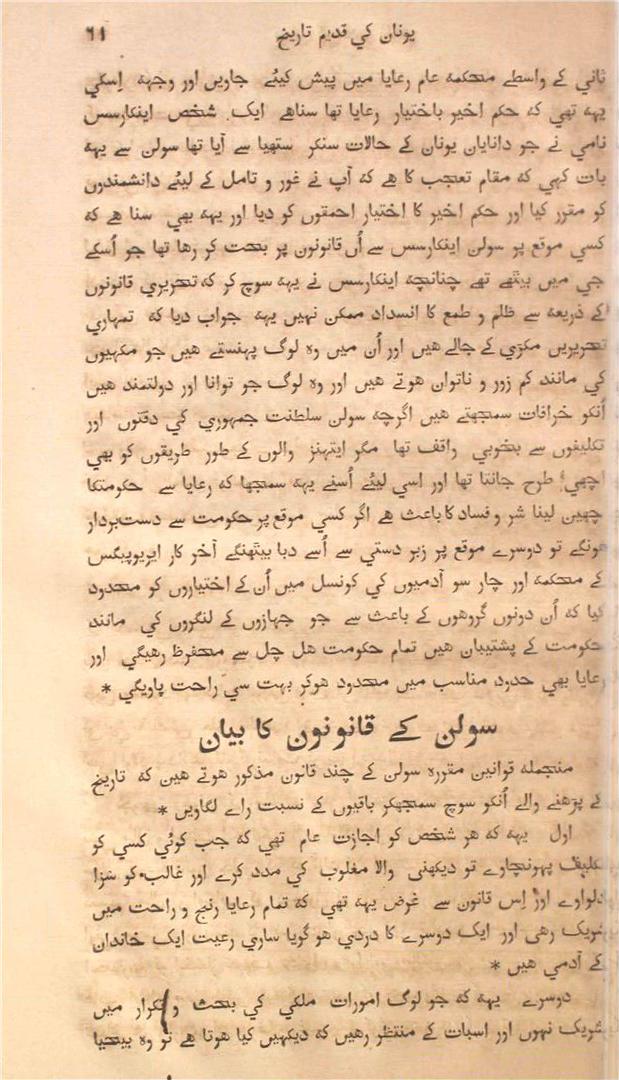 یونان کي قدیم تاریخ ٦١
ثاني کے واسطے محکمه عام رعایا میں پیش کیئے جاویں اور وجهه اِسکي
یهه تهي که حکم اخیر باختیار رعایا تها سناهے ایک شخص اینکارسس
نامي نے جو دانایان یونان کے حالات سنکر ستهیا سے آیا تها سولن سے یهه
بات کهي که مقام تعجب کا هے که آپ نے غور و تامل کے لیئے دانشمندوں
کو مقرر کیا اور حکم اخیر کا اختیار احمقوں کو دیا اور یهه بهي سنا هے که
کسي موقع پر سولن اینکارسس سے اُن قانونوں پر بحث کر رها تها جو اُسکے
جي میں بیٹهے تهے چنانچه اینکارسس نے یهه سوچ کر که تحریري قانونوں
کے ذریعه سے ظلم و طمع کا انسداد ممکن نهیں یهه جواب دیا که تمهاري
تحریریں مکڑي کے جالے هیں اور اُن میں وہ لوگ پهنستے هیں جو مکهیوں
کي مانند کم زور و ناتوان هوتے هیں اور وہ لوگ جو توانا اور دولتمند هیں
اُنکو خرافات سمجهتے هیں اگرچه سولن سلطنت جمهوري کي دقتوں اور
تکلیفوں سے بخوبي واقف تها مگر ایتهنز والوں کے طور طریقوں کو بهي
اچهي طرح جانتا تها اور اسي لیئے اُسنے یهه سمجها که رعایا سے حکومتکا
چهین لینا شر و فساد کا باعث هے اگر کسي موقع پر حکومت سے دست بردار
هونگے تو دوسرے موقع پر زبر دستي سے اُسے دبا بیٹهنگے آخر کار ایریوپیگس
کے محکمه اور چار سو آدمیوں کي کونسل میں اُن کے اختیاروں کو محدود
کیا که اُن دونوں گروهوں کے باعث سے جو جهازوں کے لنگروں کي مانند
حکومت کے پشتیبان هیں تمام حکومت هل چل سے محفوظ رهیگي اور
رعایا بهي حدود مناسب میں محدود هوکر بهت سي راحت پاویگي *
سولن کے قانونوں کا بیان
منجمله قوانین مقررہ سولن کے چند قانون مذکور هوتے هیں که تاریخ
کے پڑهنے والے اُنکو سوچ سمجهکر باقیوں کے نسبت راے لگاویں *
اول یهه که هر شخص کو اجازت عام تهي که جب کوئي کسي کو
تکلیف پهونچاوے تو دیکهنی والا مغلوب کي مدد کرے اور غالب کو سزا
دلواوے اور اِس قانون سے غرض یهه تهي که تمام رعایا رنج و راحت میں
شریک رهی اور ایک دوسرے کا دردي هو گویا ساري رعیت ایک خاندان
کے آدمي هیں *
دوسرے یهه که جو لوگ امورات ملکي کي بحث و تکرار میں
شریک نهوں اور اسبات کے منتظر رهیں که دیکهیں کیا هوتا هے تو وہ بیحیا